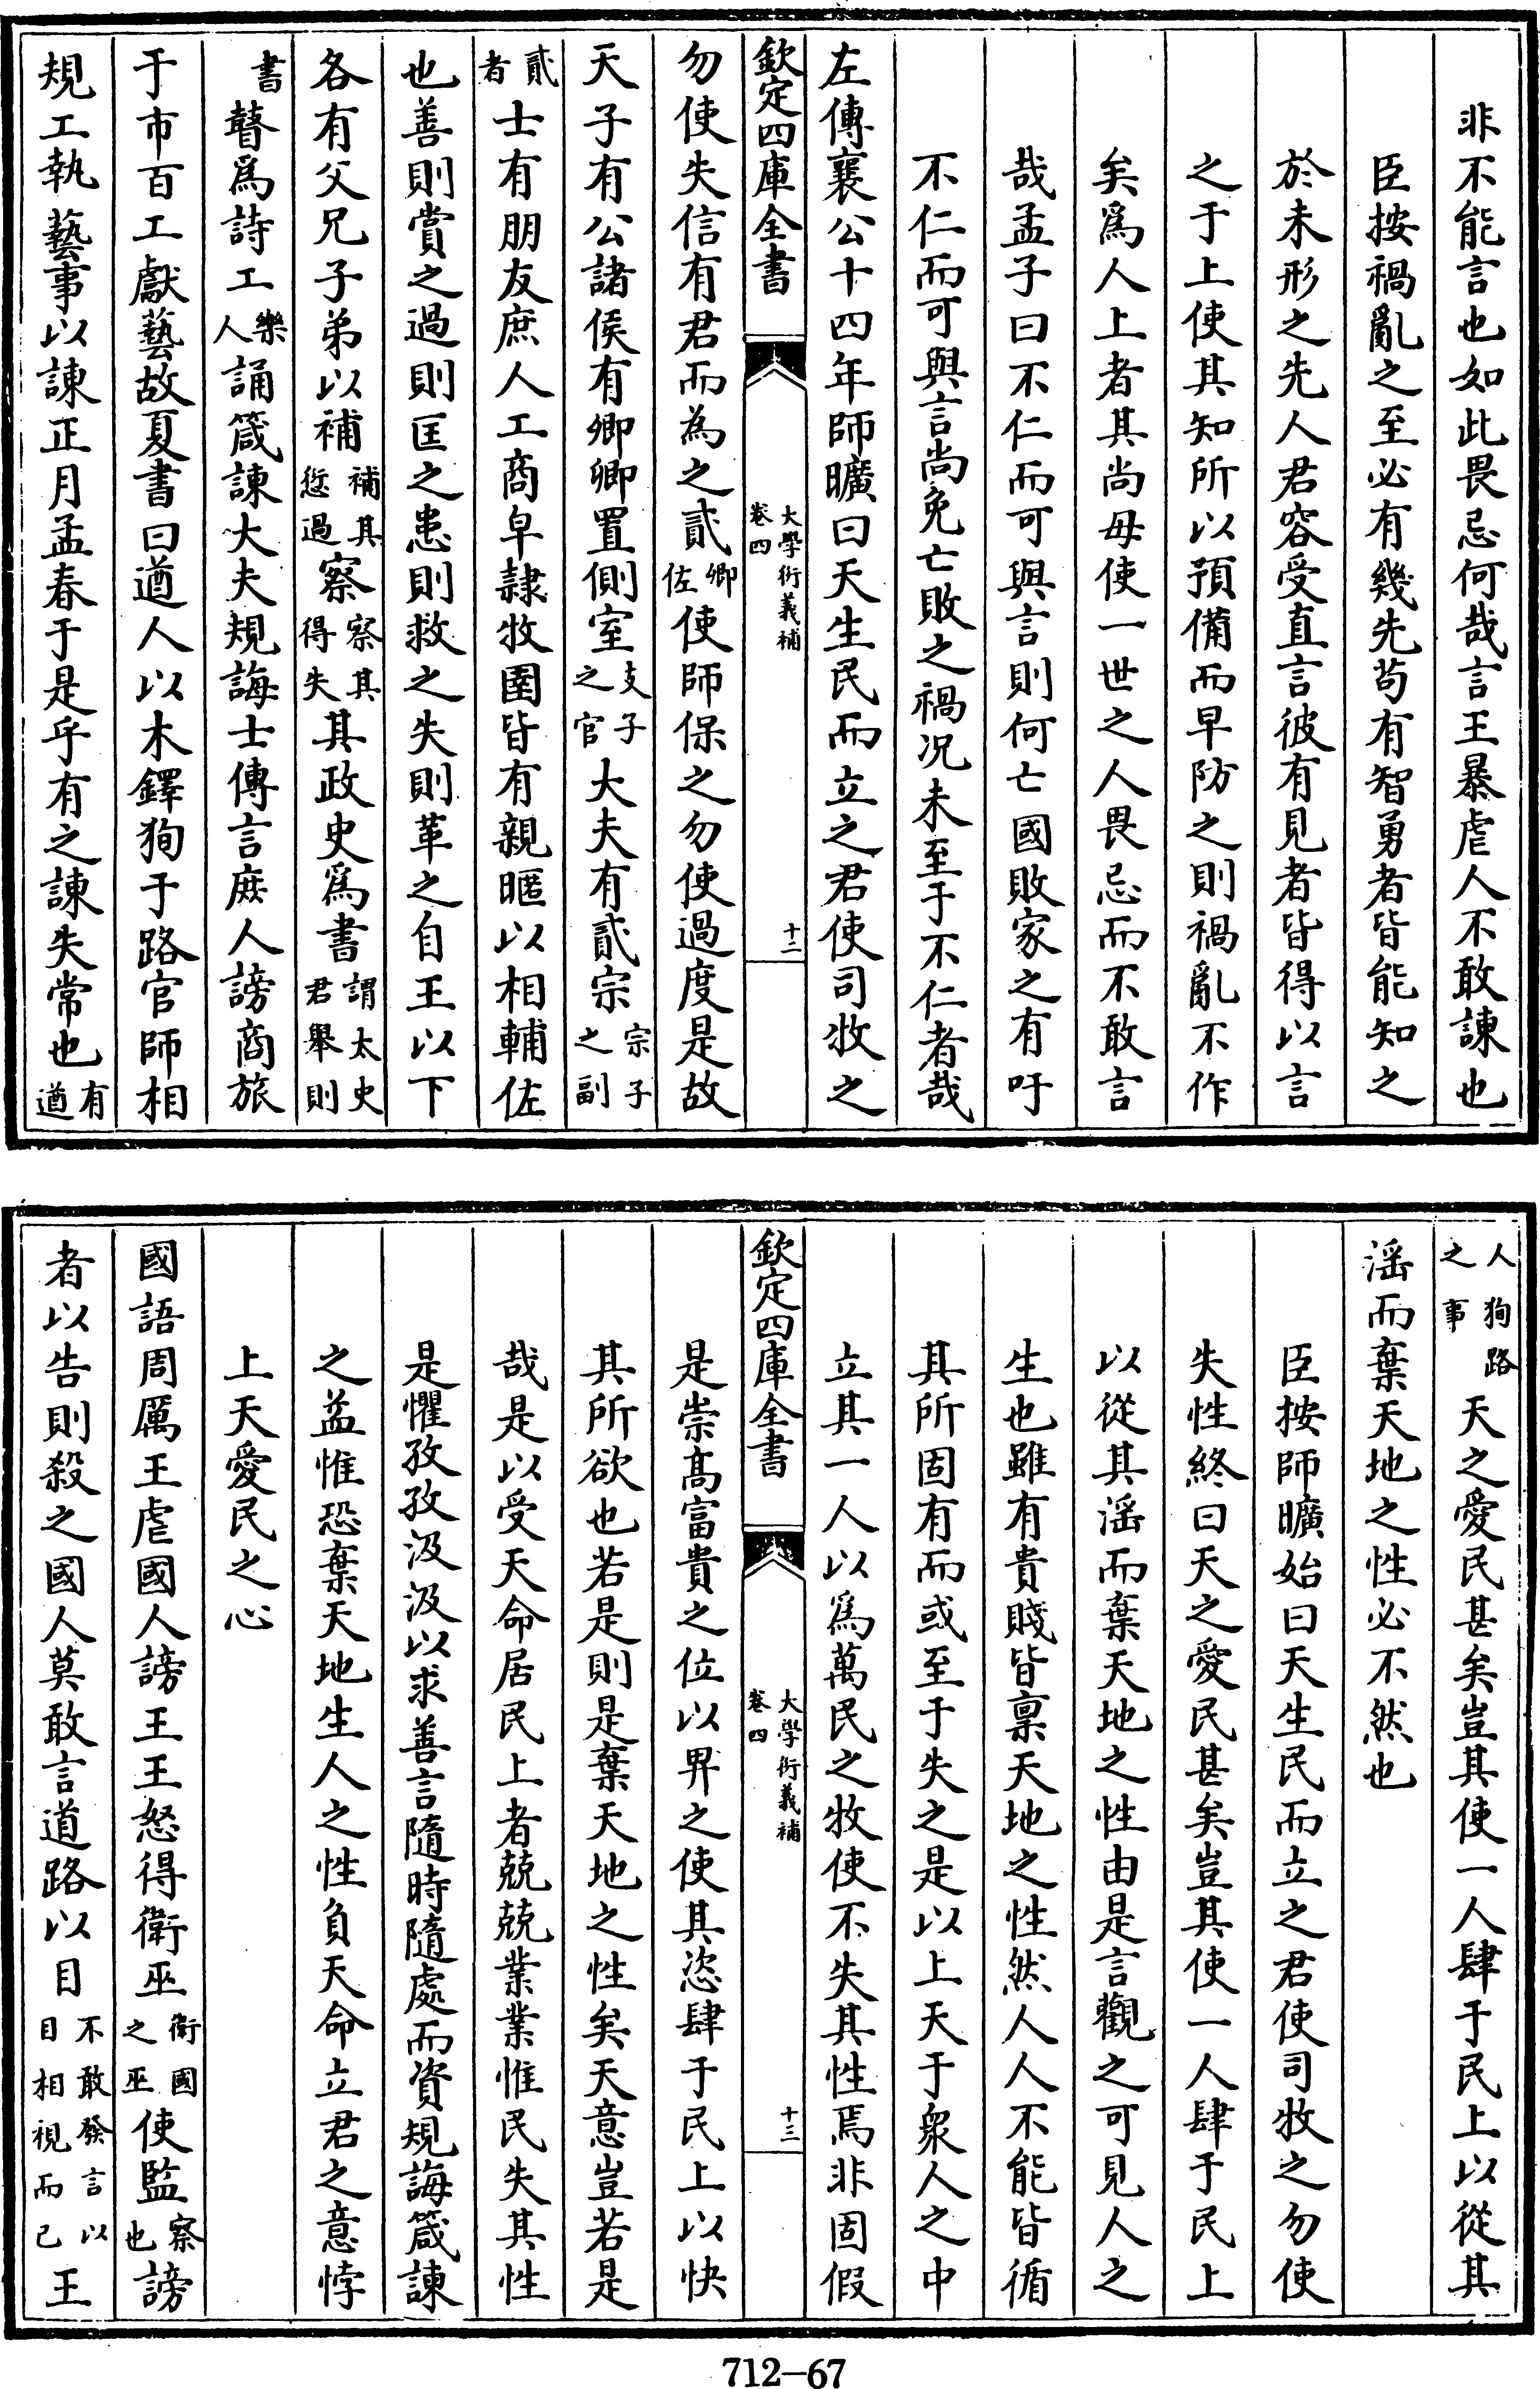 非不能言也如此畏忌何哉言王暴虐人不敢諫也
臣按禍亂之至必有幾先苟有智勇者皆能知之
於未形之先人君容受直言彼有見者皆得以言
之于上使其知所以預備而早防之則禍亂不作
矣爲人上者其尚毋使一世之人畏忌而不敢言
哉孟子曰不仁而可與言則何亡國敗家之有吁
不仁而可與言尚免亡敗之禍况未至于不仁者哉
左傳襄公十四年師曠曰天生民而立之君使司牧之
欽定四庫全書
大學衍義補
卷四
十二
勿使失信有君而為之貳卿佐使師保之勿使過度是故
天子有公諸侯有卿卿置側室支子之官大夫有貳宗宗子之副
貳者士有朋友庶人工商皁隷牧圉皆有親暱以相輔佐
也善則賞之過則匡之患則救之失則革之自王以下
各有父兄子弟以補補其愆過察察其得失其政史爲書謂太史君舉則
書瞽爲詩工樂人誦箴諫大夫規誨士傳言庶人謗商旅
于市百工獻藝故夏書曰遒人以木鐸狥于路官師相
規工執藝事以諫正月孟春于是乎有之諫失常也有遒
人狥路之事天之愛民甚矣豈其使一人肆于民上以從其
滛而棄天地之性必不然也
臣按師曠始曰天生民而立之君使司牧之勿使
失性終曰天之愛民甚矣豈其使一人肆于民上
以從其滛而棄天地之性由是言觀之可見人之
生也雖有貴賤皆禀天地之性然人人不能皆循
其所固有而或至于失之是以上天于衆人之中
立其一人以爲萬民之牧使不失其性焉非固假
欽定四庫全書
大學衍義補
卷四
十三
是崇髙富貴之位以畀之使其恣肆于民上以快
其所欲也若是則是棄天地之性矣天意豈若是
哉是以受天命居民上者兢兢業業惟民失其性
是懼孜孜汲汲以求善言隨時隨處而資規誨箴諫
之益惟恐棄天地生人之性負天命立君之意悖
上天愛民之心
國語周厲王虐國人謗王王怒得衛巫衛國之巫使監察也謗
者以告則殺之國人莫敢言道路以目不敢發言以目相視而已王
712-67